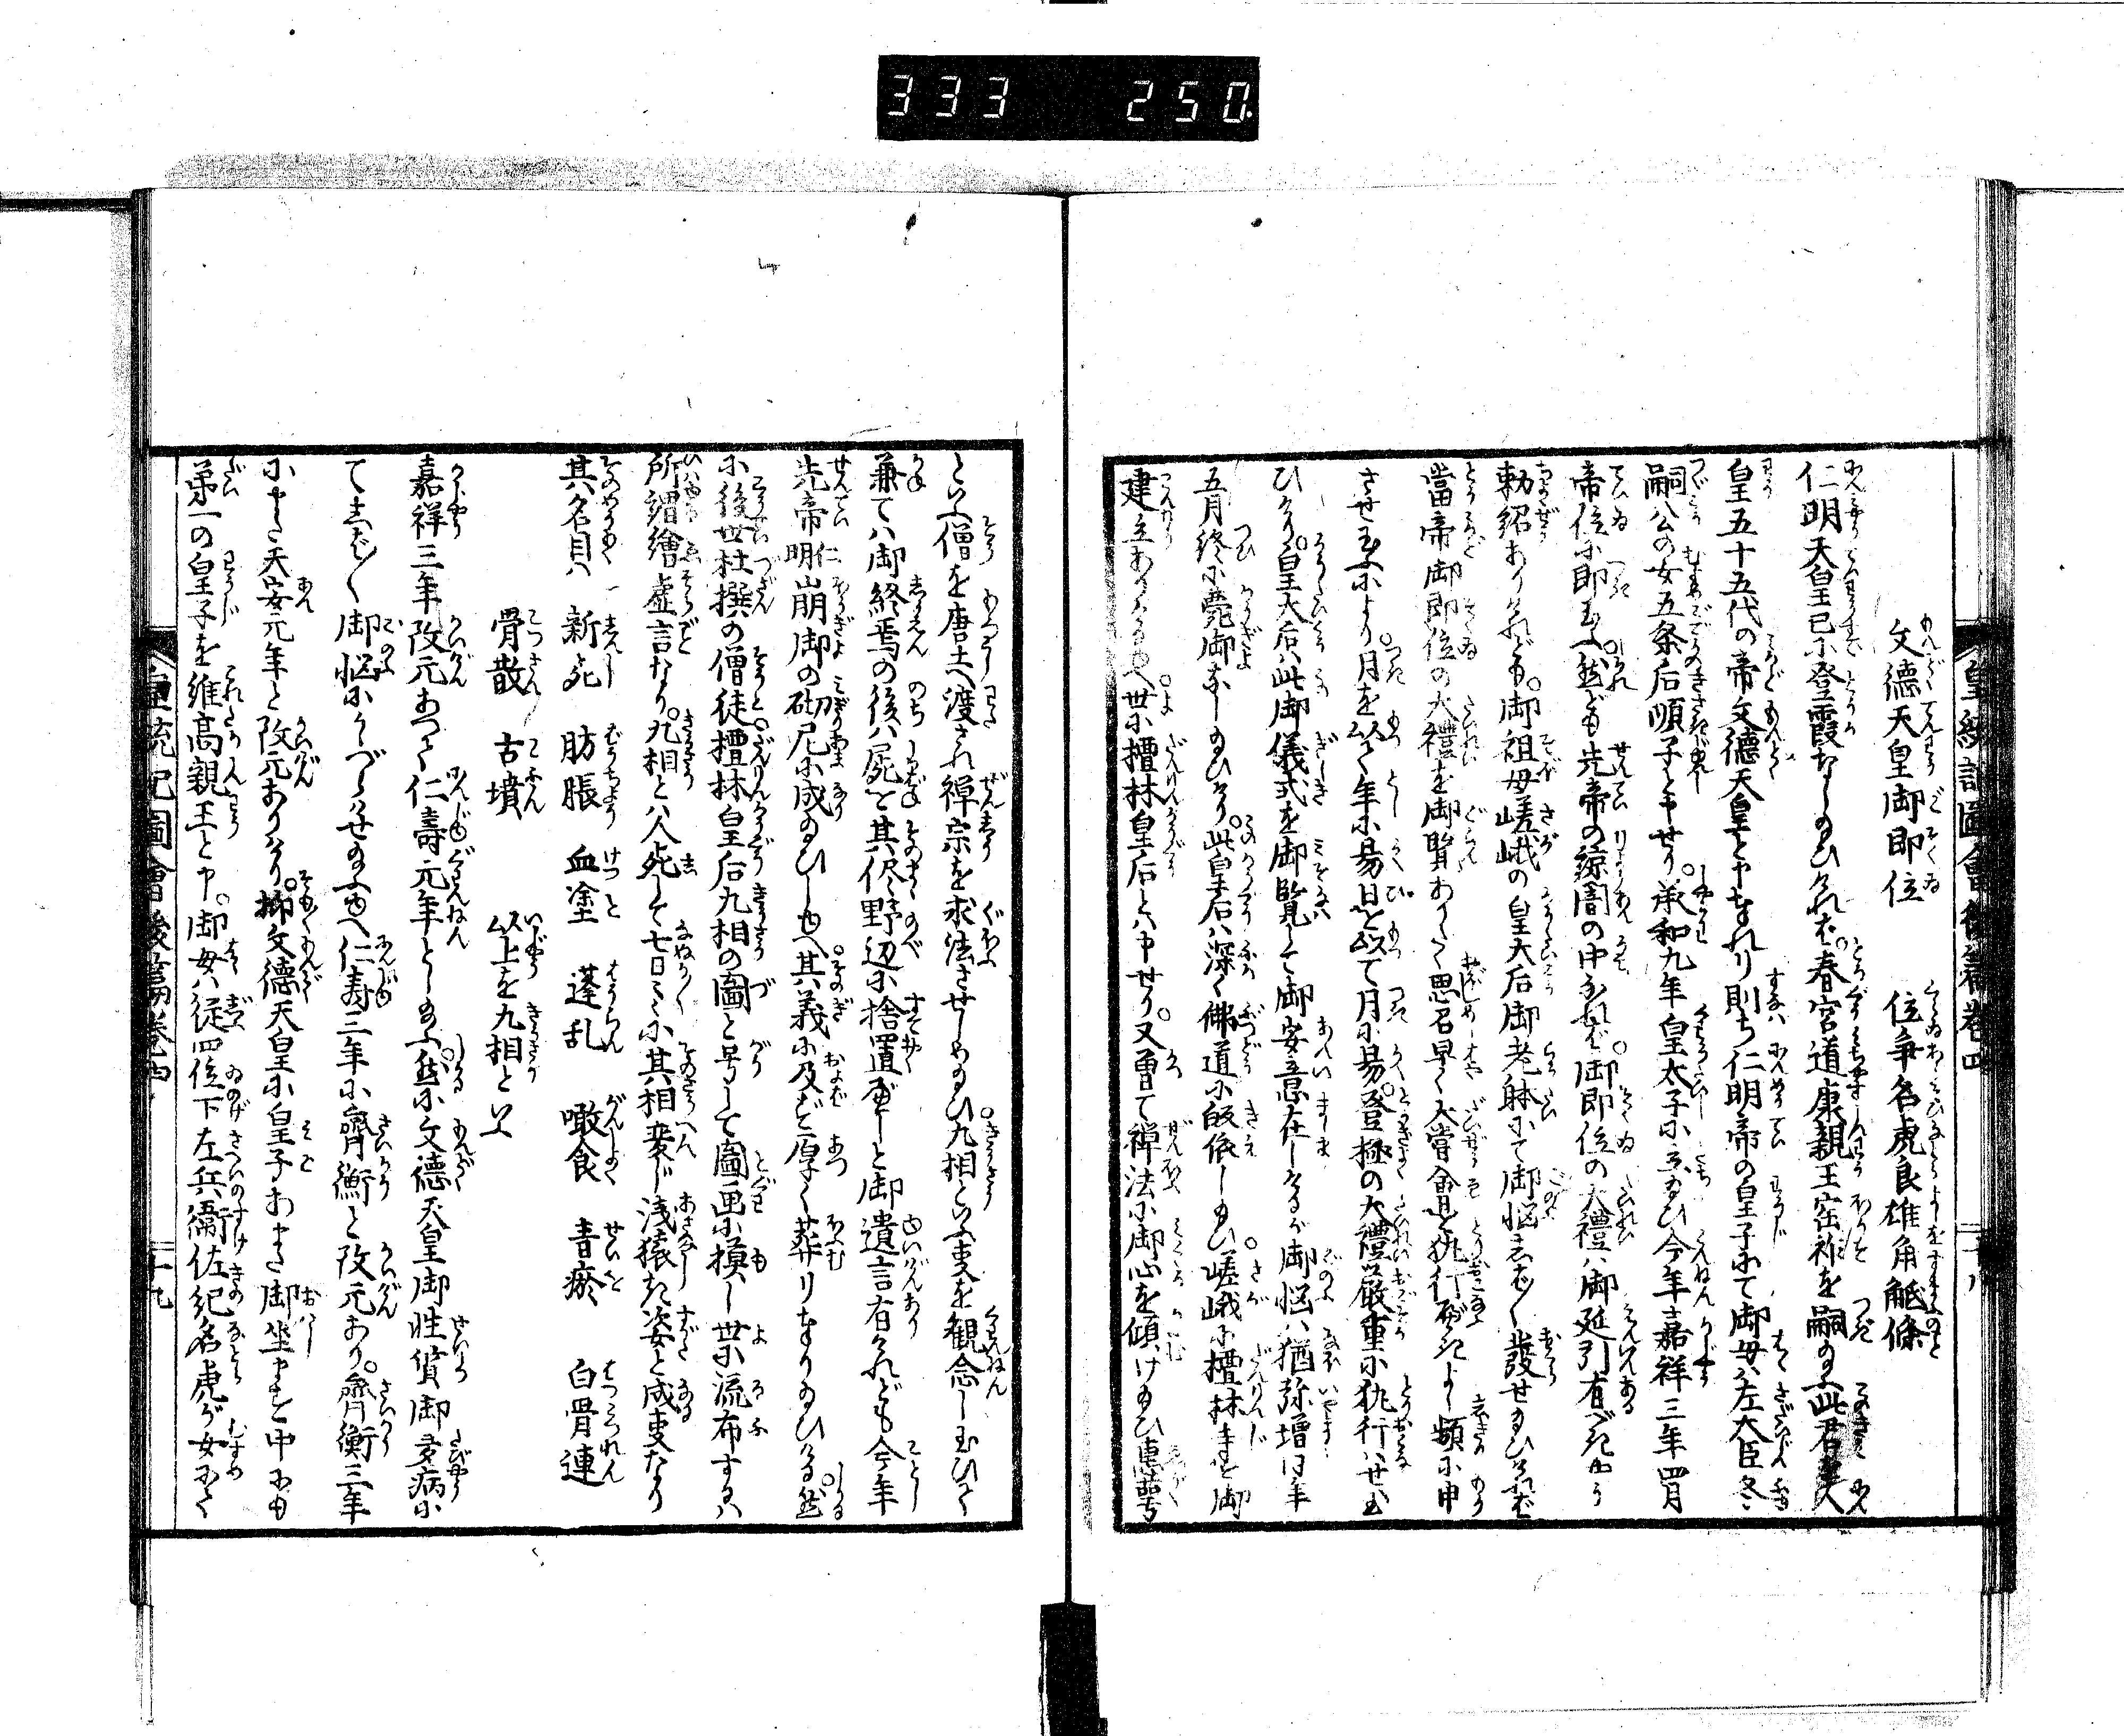 333 250
皇統記圖會後篇巻四 十八
文徳天皇御即位 位争名虎良雄角觝條
仁明天皇已に登霞なし給ひけれバ春宮道康親王宝祚を嗣給ふ此君人
皇五十五代の帝文徳天皇と申奉れり則ち仁明帝の皇子にて御母ハ左大臣冬
嗣公の女五条后順子と申せり承和九年皇太子に立給ひ今年嘉祥三年四月
帝位に即玉ふ然ども先帝の諒闇の中なれバ御即位の大禮ハ御延引有べき由
勅詔ありけれども御祖母嵯峨の皇大后御老躰にて御悩しば〱發せ給ひけれバ
當帝御即位の大禮を御覧ありたく思召早く大嘗會を執行べきよし頻に申
させ玉ふにより月を以て年に易日を以て月に易登極の大禮厳重に執行ハせ玉
ひけり皇大后ハ此御儀式を御覧じて御安意在しけるが御悩ハ猶弥増同年
五月終に薨御なし給ひけり此皇后ハ深く佛道に皈依し給ひ嵯峨に檀林寺を御
建立ありけるゆへ世に檀林皇后とハ申せり又曽て禅法に御心を傾け給ひ恵萼
といふ僧を唐土へ渡され禅宗を求法させしめ給ひ九相といふ事を観念し玉ひて
兼てハ御終焉の後ハ屍を其侭野辺に捨置べしと御遺言有けれども今年
先帝仁明崩御の砌尼に成給ひしゆへ其義に及バず厚く葬り奉り給ひける然
に後世杜撰の僧徒檀林皇后九相の圖と号して圖画に摸し世に流布するハ
所謂繪虚言なり九相とハ人死して七日〱に其相変じ浅猿き姿と成事なり
其名目ハ 新死 肪脹 血塗 蓬乱 噉食 青瘀 白骨連
骨散 古墳 以上を九相といふ
嘉祥三年改元あつて仁壽元年とし給ふ然に文徳天皇御性質御多病に
てしば〱御悩にかゝづらハせ給ふゆへ仁寿三年に齊衡と改元あり齊衡三年
にまた天安元年と改元ありけり抑文徳天皇に皇子あまた御坐ます中にも
第一の皇子を維高親王と申御母ハ従四位下左兵衛佐紀名虎が女にて
皇統記圖會後篇巻四 十九